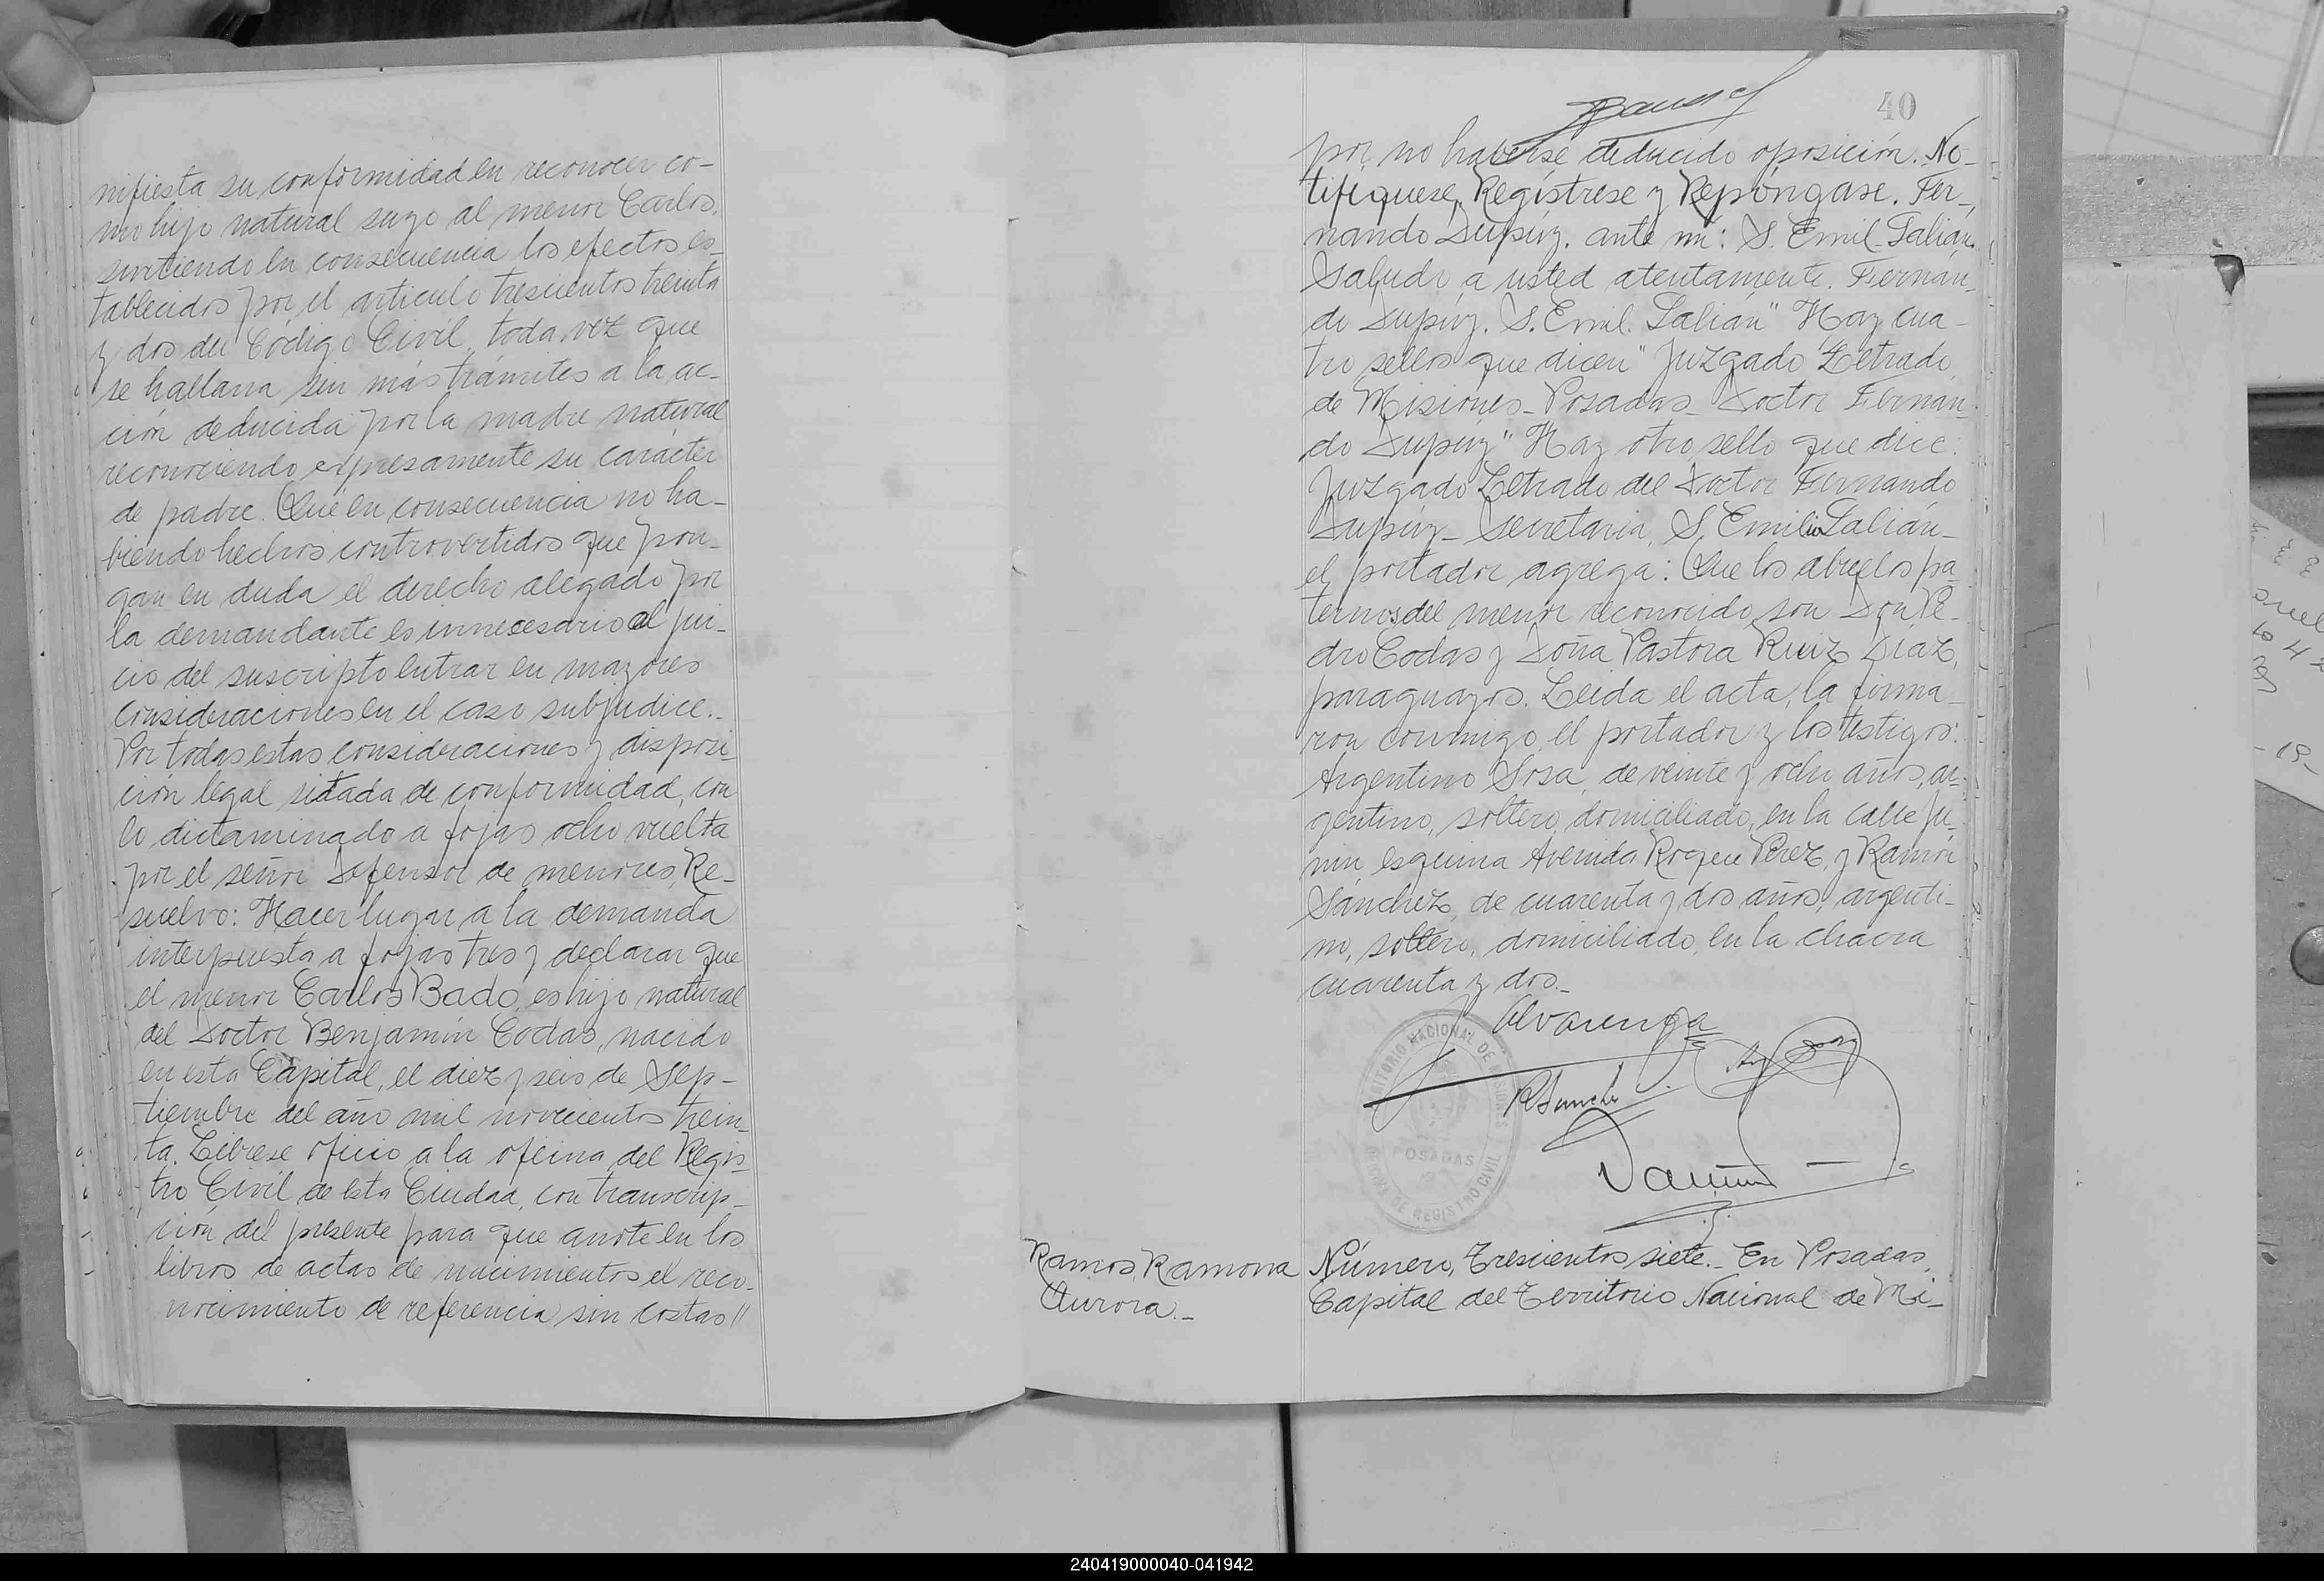 nifiesta su conformidad en reconocer co-
mo hijo natural suyo al menor Carlos,
surtiendo en consecuencia los efectos es-
tablecidos por el articulo trescientos treinta
y dos del Código Civil, toda vez que
se hallana sin más trámites a la ac-
ción deducida por la madre natural
reconociendo expresamente su carácter
de padre. Que en consecuencia no ha-
biendo hechos controvertidos que pon-
gan en duda el derecho alegado por
la demandante es innecesario al jui-
cio del suscripto entrar en mayores
consideraciones en el caso subjudice.-
Por todas estas consideraciones y disposi-
ción legal sitada de conformidad, con
lo dictaminado a fojas ocho vuelta
por el señor Defensor de menores, Re-
suelvo: Hacer lugar a la demanda
interpuesta a fojas tres y declarar que
el menor Carlos Bado, es hijo natural
del Doctor Benjamín Codas, nacido
en esta Capital, el diez y seis de Sep-
tiembre del año mil novecientos trein-
ta. Líbrese oficio a la oficina del Regis-
tro Civil de esta Ciudad, con transcrip-
ción del presente para que anote en los
libros de actas de nacimientos el reco-
nocimiento de referencia sin costas //
40
por no haberse deducido oposición. No-
tifíquese, Regístrese y Repóngase. Fer-
nando Dupuy. ante mí: S. Emil. Lalián.
Saludo a usted atentamente. Fernan-
do Dupuy. S. Emil. Lalián" Hay cua-
tro sellos que dicen "Juzgado Letrado
de Misiones - Posadas - Doctor Fernan-
do Dupuy" Hay otro sello que dice:
Juzgado Letrado del Doctor Fernando
Dupuy - Secretaria, S. Emilio Lalián -
el portador agrega: Que los abuelos pa-
ternos del menor reconocido son Don Pe-
dro Codas y Doña Pastora Ruiz Díaz,
paraguayos. Leida el acta, la firma-
ron conmigo, el portador y los testigos:
Argentino Sosa, de veinte y ocho años, ar-
gentino, soltero, domiciliado, en la calle Ju-
nin esquina Avenida Roque Perez, y Ramón
Sánchez, de cuarenta y dos años, argenti-
no, soltero, domiciliado, en la chacra
cuarenta y dos.-
Alvarenga
R Sanchez
TERRITORIO NACIONAL DE MISIONES
POSADAS
OFICINA DE REGISTRO CIVIL
Ramos, Ramona
Aurora.-
Número, Trescientos siete.- En Posadas,
Capital del Territorio Nacional de Mi-
240419000040-041942